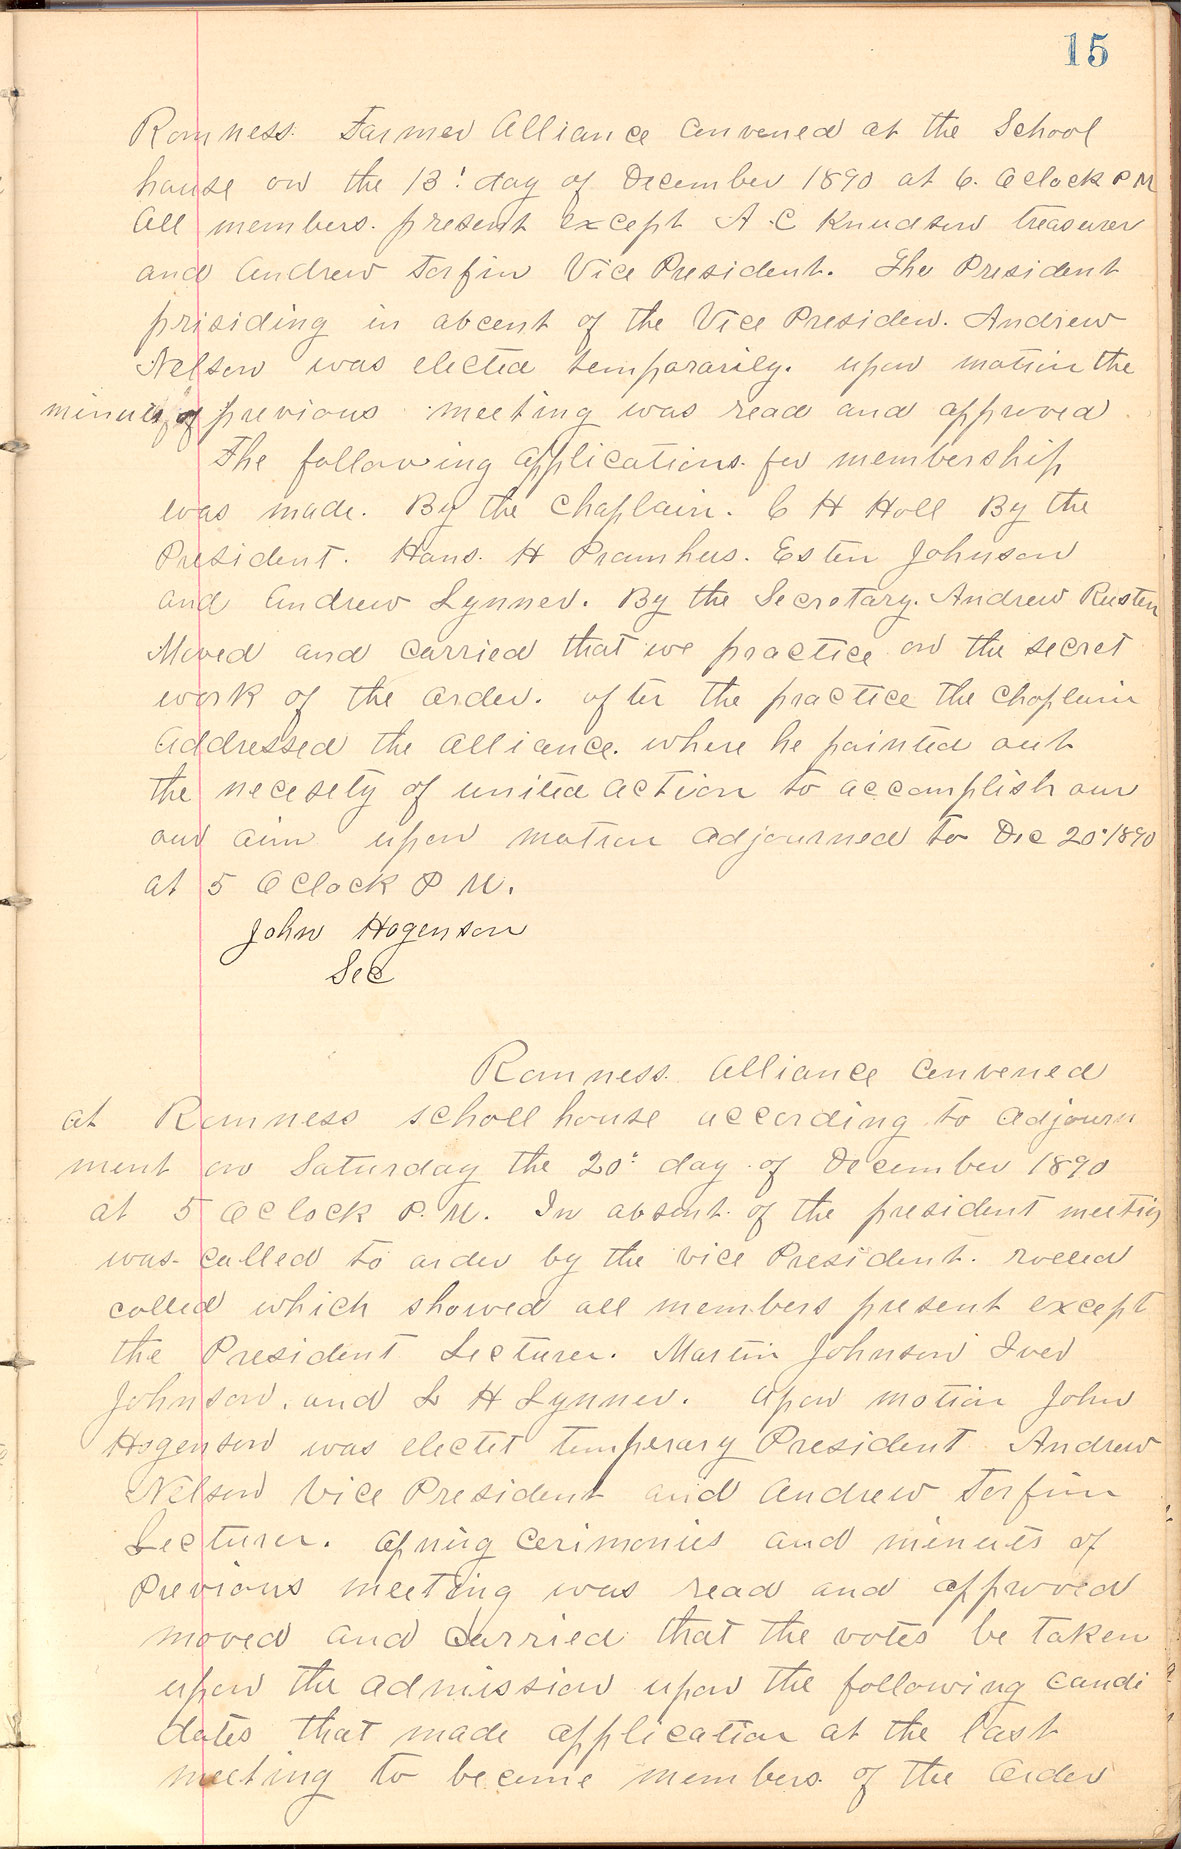 15
Romness. Farmer Alliance Convened at the School
house on the 13! day of December 1890 at 6. Oclock P M
All members. present except A. C Knudson treasurer
and Andrew Torfin Vice President. The President
prisiding in abcent of the Vice Presiden. Andrew
Nelson was elected temporarily. upon motion the
minutes of previous meeting was read and approved.
The following applications. for membership
was made. By the Chaplain. C H Holl By the
President. Hans. H Pramhus. Esten Johnson
and Andrew Lynner. By the Secretary. Andrew Rusten
Moved and carried that we practice on the secret
work of the order. after the practice the Chaplain
Addressed the Alliance. where he pointed out
the necesety of united action to accomplish our
our aim upon motion adjourned to Dec 20' 1890
at 5 OClock P M.
John Hogenson
Sec
Romness. Alliance Convened
at Romness scholl house according to adjourn
ment on Saturday the 20: day of December 1890
at 5 Oclock P. M. In absent. of the president meeting
was called to order by the vice President. rolled
called which showed all members present except
the President Lecturer. Martin Johnson Iver
Johnson. and L H Lynner. Upon motion John
Hogenson was electet temperary President Andrew
Nelson Vice President and Andrew Torfin
Lecturer. Opnig Cerimonies and minutes of
Previous meeting was read and approved
moved and Carried that the votes be taken
upon the admission upon the following candi
dates that made application at the last
meeting to become members. of the order